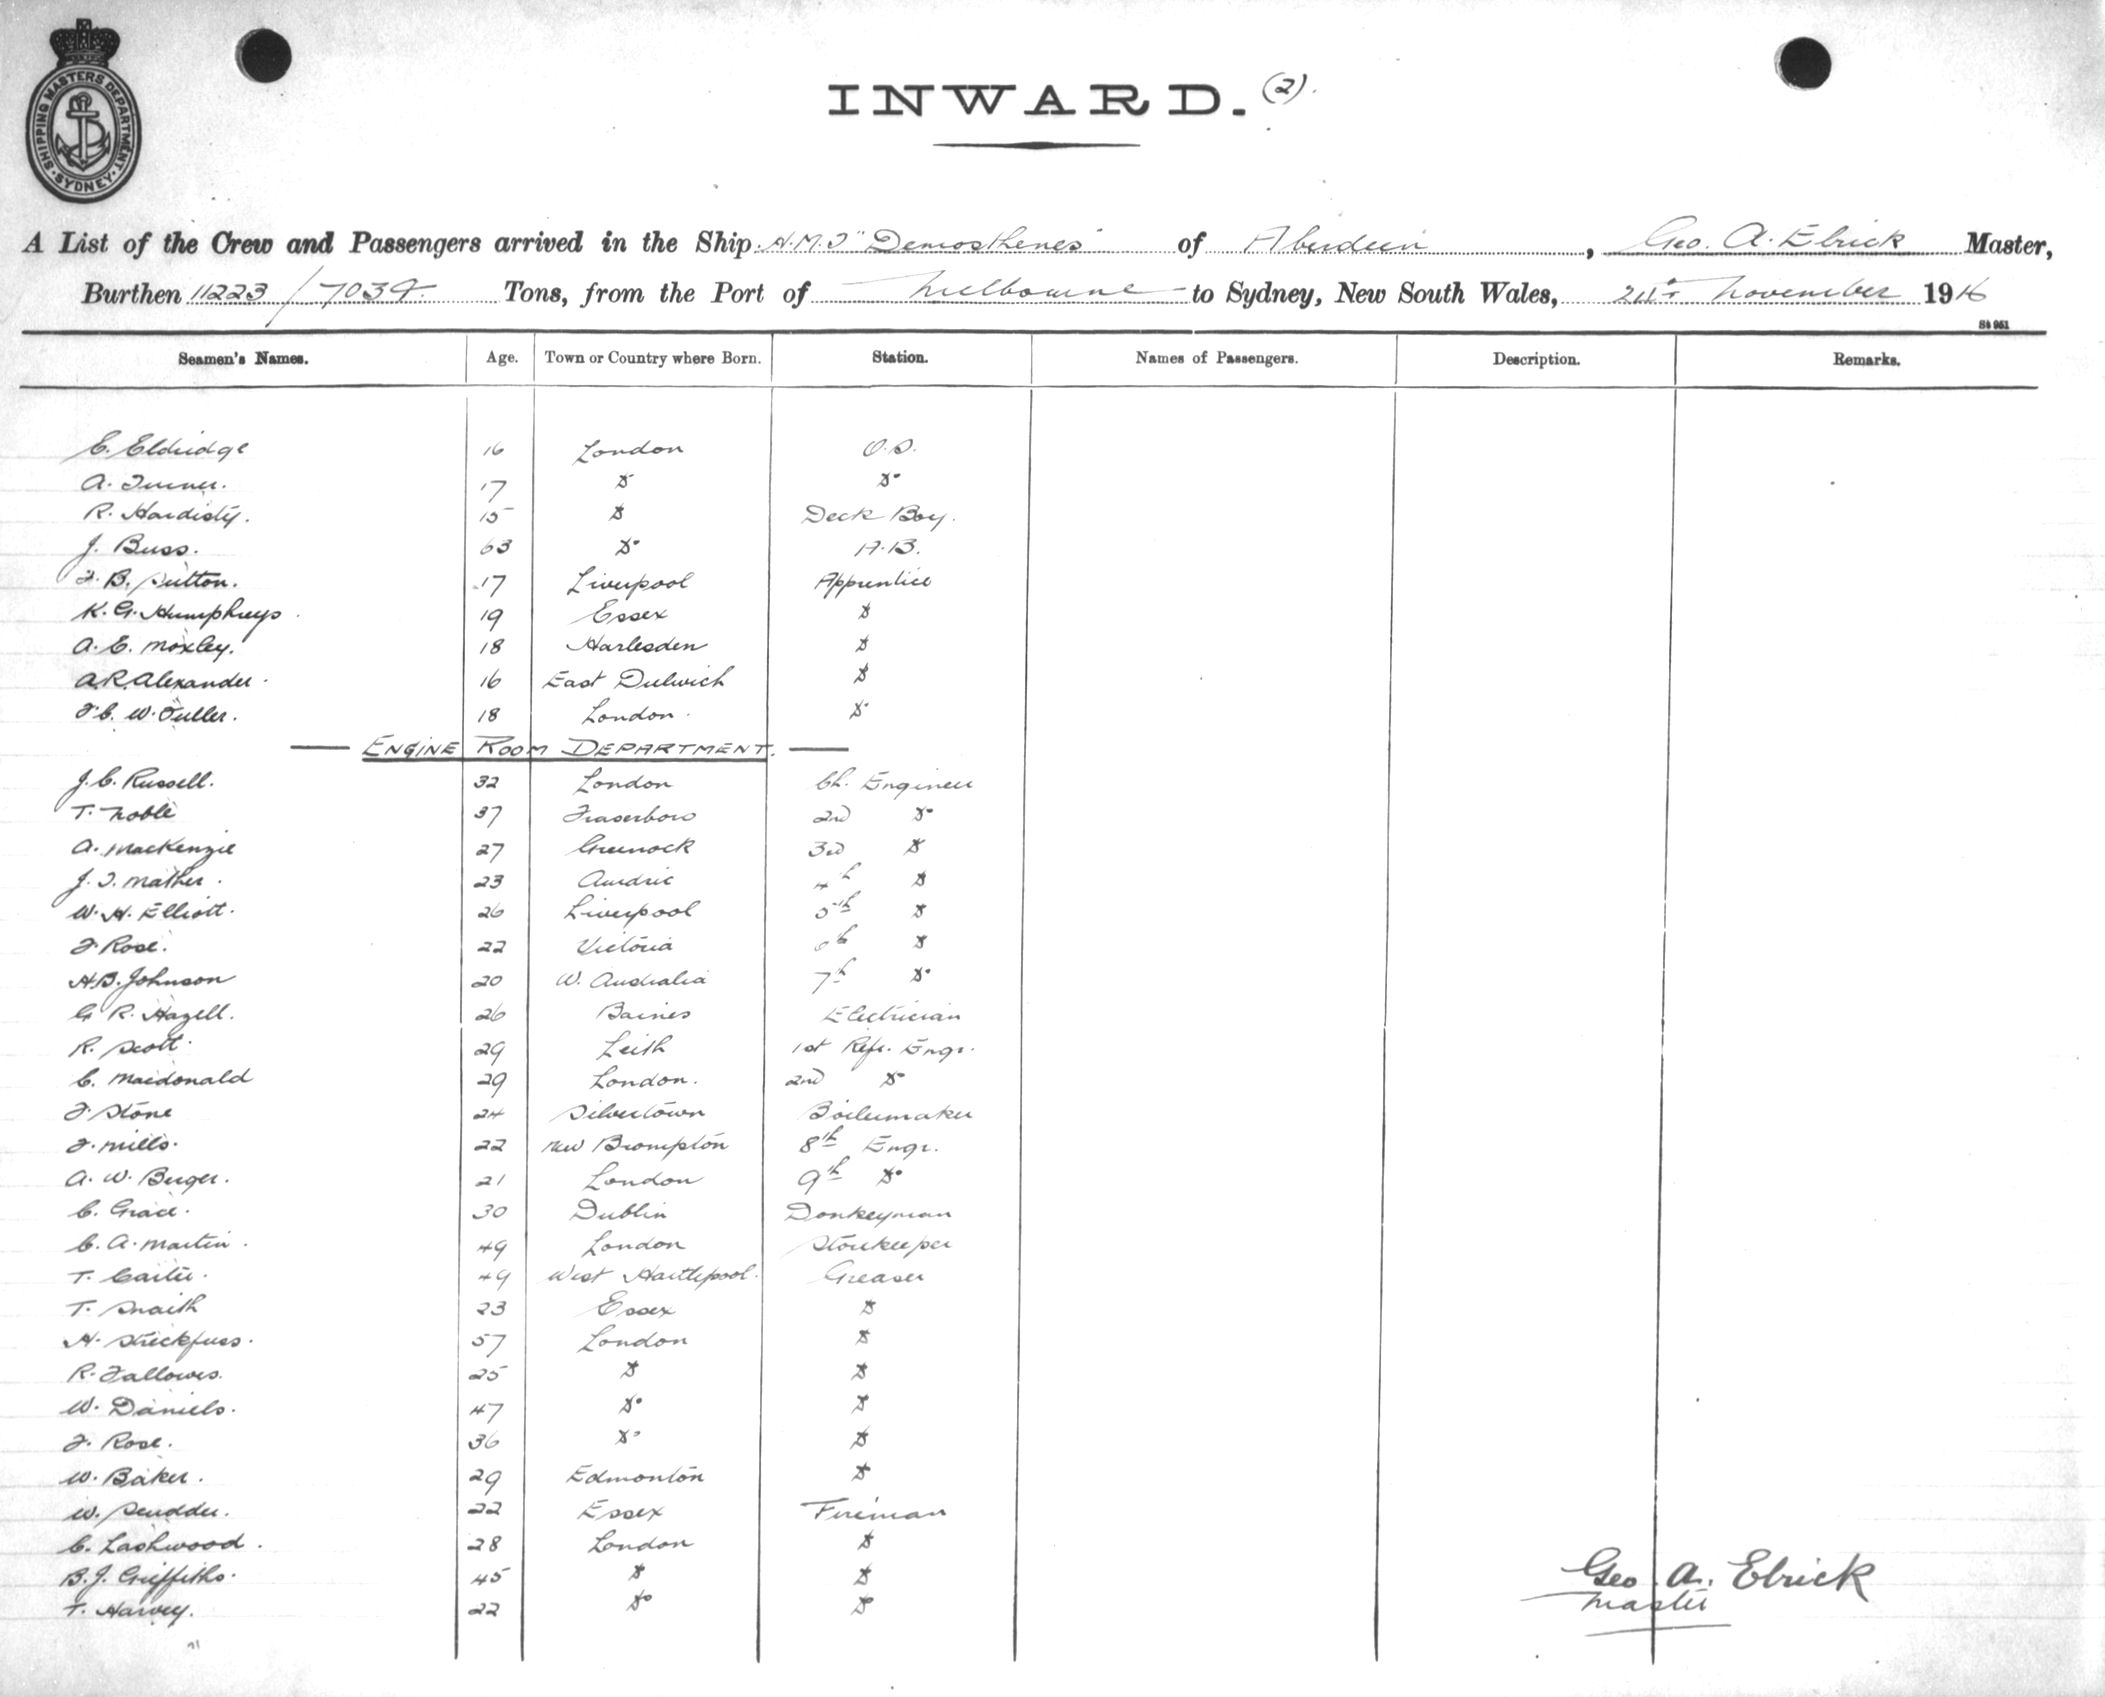 SHIPPING MASTERS DEPARTMENT
SYDNEY
INWARD. (2).
A List of the Crew and Passengers arrived in the Ship H.M.T "Demosthenes" of Aberdeen, Geo. A. Elrick Master,
Burthen 11223 / 7039 Tons, from the Port of Melbourne to Sydney, New South Wales, November 1916
St 951
Seamen's Names. Age. Town or Country where Born. Station. Names of Passengers. Description. Remarks.
E. Eldridge 16 London O.S.
A. Turner. 17 Do Do
R. Hardisty. 15 Do Deck Boy.
J. Buss. 63 Do A.B.
F. B. Sutton. 17 Liverpool Apprentice
K. G. Humphreys 19 Essex Do
A. E. Moxley. 18 Harlesden Do
A. R. Alexander. 16 East Dulwich Do
F. C. W. Fuller. 18 London. Do
ENGINE ROOM DEPARTMENT.
J. C. Russell. 32 London Ch. Engineer
T. Noble 37 Fraserboro 2nd Do
A. MacKenzie 27 Greenock 3rd Do
J. T. Mather. 23 4th Do
W. H. Elliott. 26 Liverpool 5th Do
F. Rose. 22 Victoria 6th Do
H. B. Johnson 20 W. Australia 7th Do
G R. Hazell. 26 Baines Electrician
R. Scott. 29 Leith 1st Refr. Engr.
C. Macdonald 29 London. 2nd Do
F. Stone 24 Silvertown Boilermaker
F. Mills. 22 New Brompton 8th Engr.
A. W. Berger. 21 London 9th Do
C. Grace. 30 Dublin Donkeyman
C. A. Martin. 49 London Storekeeper
T. Carter. 49 West Hartlepool. Greaser
T. Snaith 23 Essex Do
H. Streckfuss. 57 London Do
R. Fallowes. 25 Do Do
W. Daniels. 47 Do Do
F. Rose. 36 Do Do
W. Baker. 29 Edmonton Do
W. Scudder. 22 Essex Fireman
C. Lashwood. 28 London Do
B. J. Griffiths. 45 Do Do
T. Harvey. 22 Do Do
Geo. A. Elrick
Master